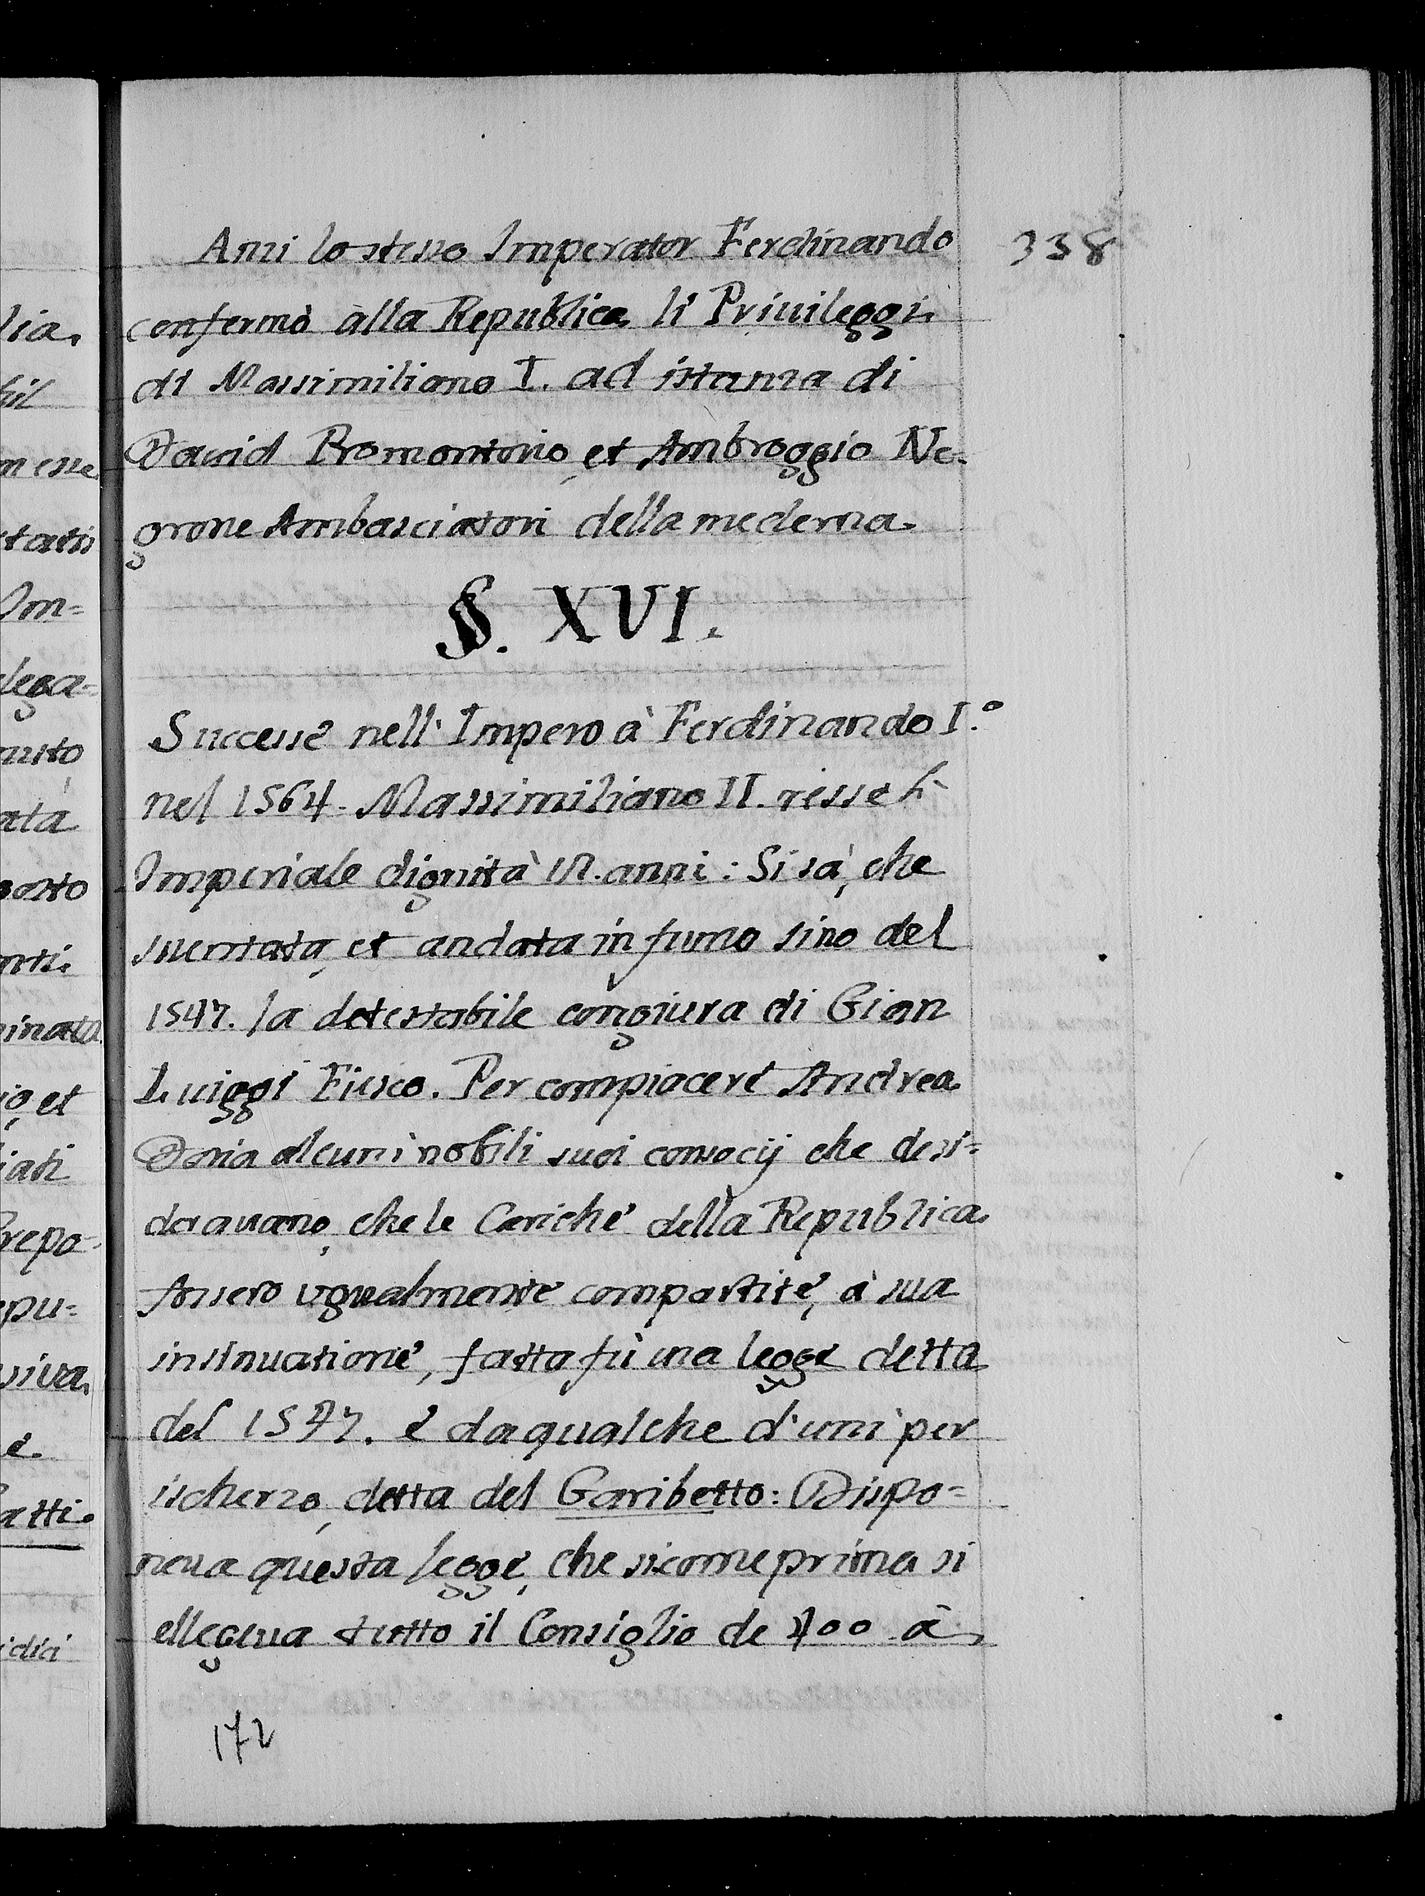 338
Anzi lo stesso Imperator Ferdinando
confermò àlla Republica li Priuileggi
di Massimiliano I. ad istanza di
Dauid Promontorio, et Ambroggio Ne-
grone Ambasciatori della medema.
§. XVI.
Successe nell' Impero à Ferdinando I.º
nel 1564. Massimiliano II. resse l'
Imperiale dignità 12. anni: Si sà, che
suentata, et andata in fumo sino del
1547. la detestabile congiura di Gian
Luiggi Fiesco. Per compiacere Andrea
Doria alcuni nobili suoi consocij che desi=
derauano, che le Cariche della Republica
fossero ugualmente compartite, à sua
insinuatione, fatta fù una legge detta
del 1547. è da qualche d'uni per
ischerzo, detta del Garibetto: Dispo=
neua questa legge, che sicome prima si
ellegeua tutto il Consiglio de 400 à
172